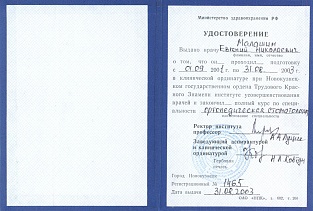 Министерство здравоохранения РФ
УДОСТОВЕРЕНИЕ
Малашин
Выдано врачу Евгений Николаевич
фамилия, имя, отчество
о том, что он проходил подготовку
с 01.09 2001 г. по 31.08 2003 г.
в клинической ординатуре при Новокузнец-
ком государственном ордена Трудового Крас-
ного Знамени институте усовершенствования
врачей и закончил полный курс по специ-
альности ортопедическая стоматология
наименование специальности
Ректор института
профессор
Заведующий аспирантурой
и клинической
ординатурой
Гербовая
печать
Город Новокузнецк
Регистрационный № 1465
Дата выдачи 31.08.2003